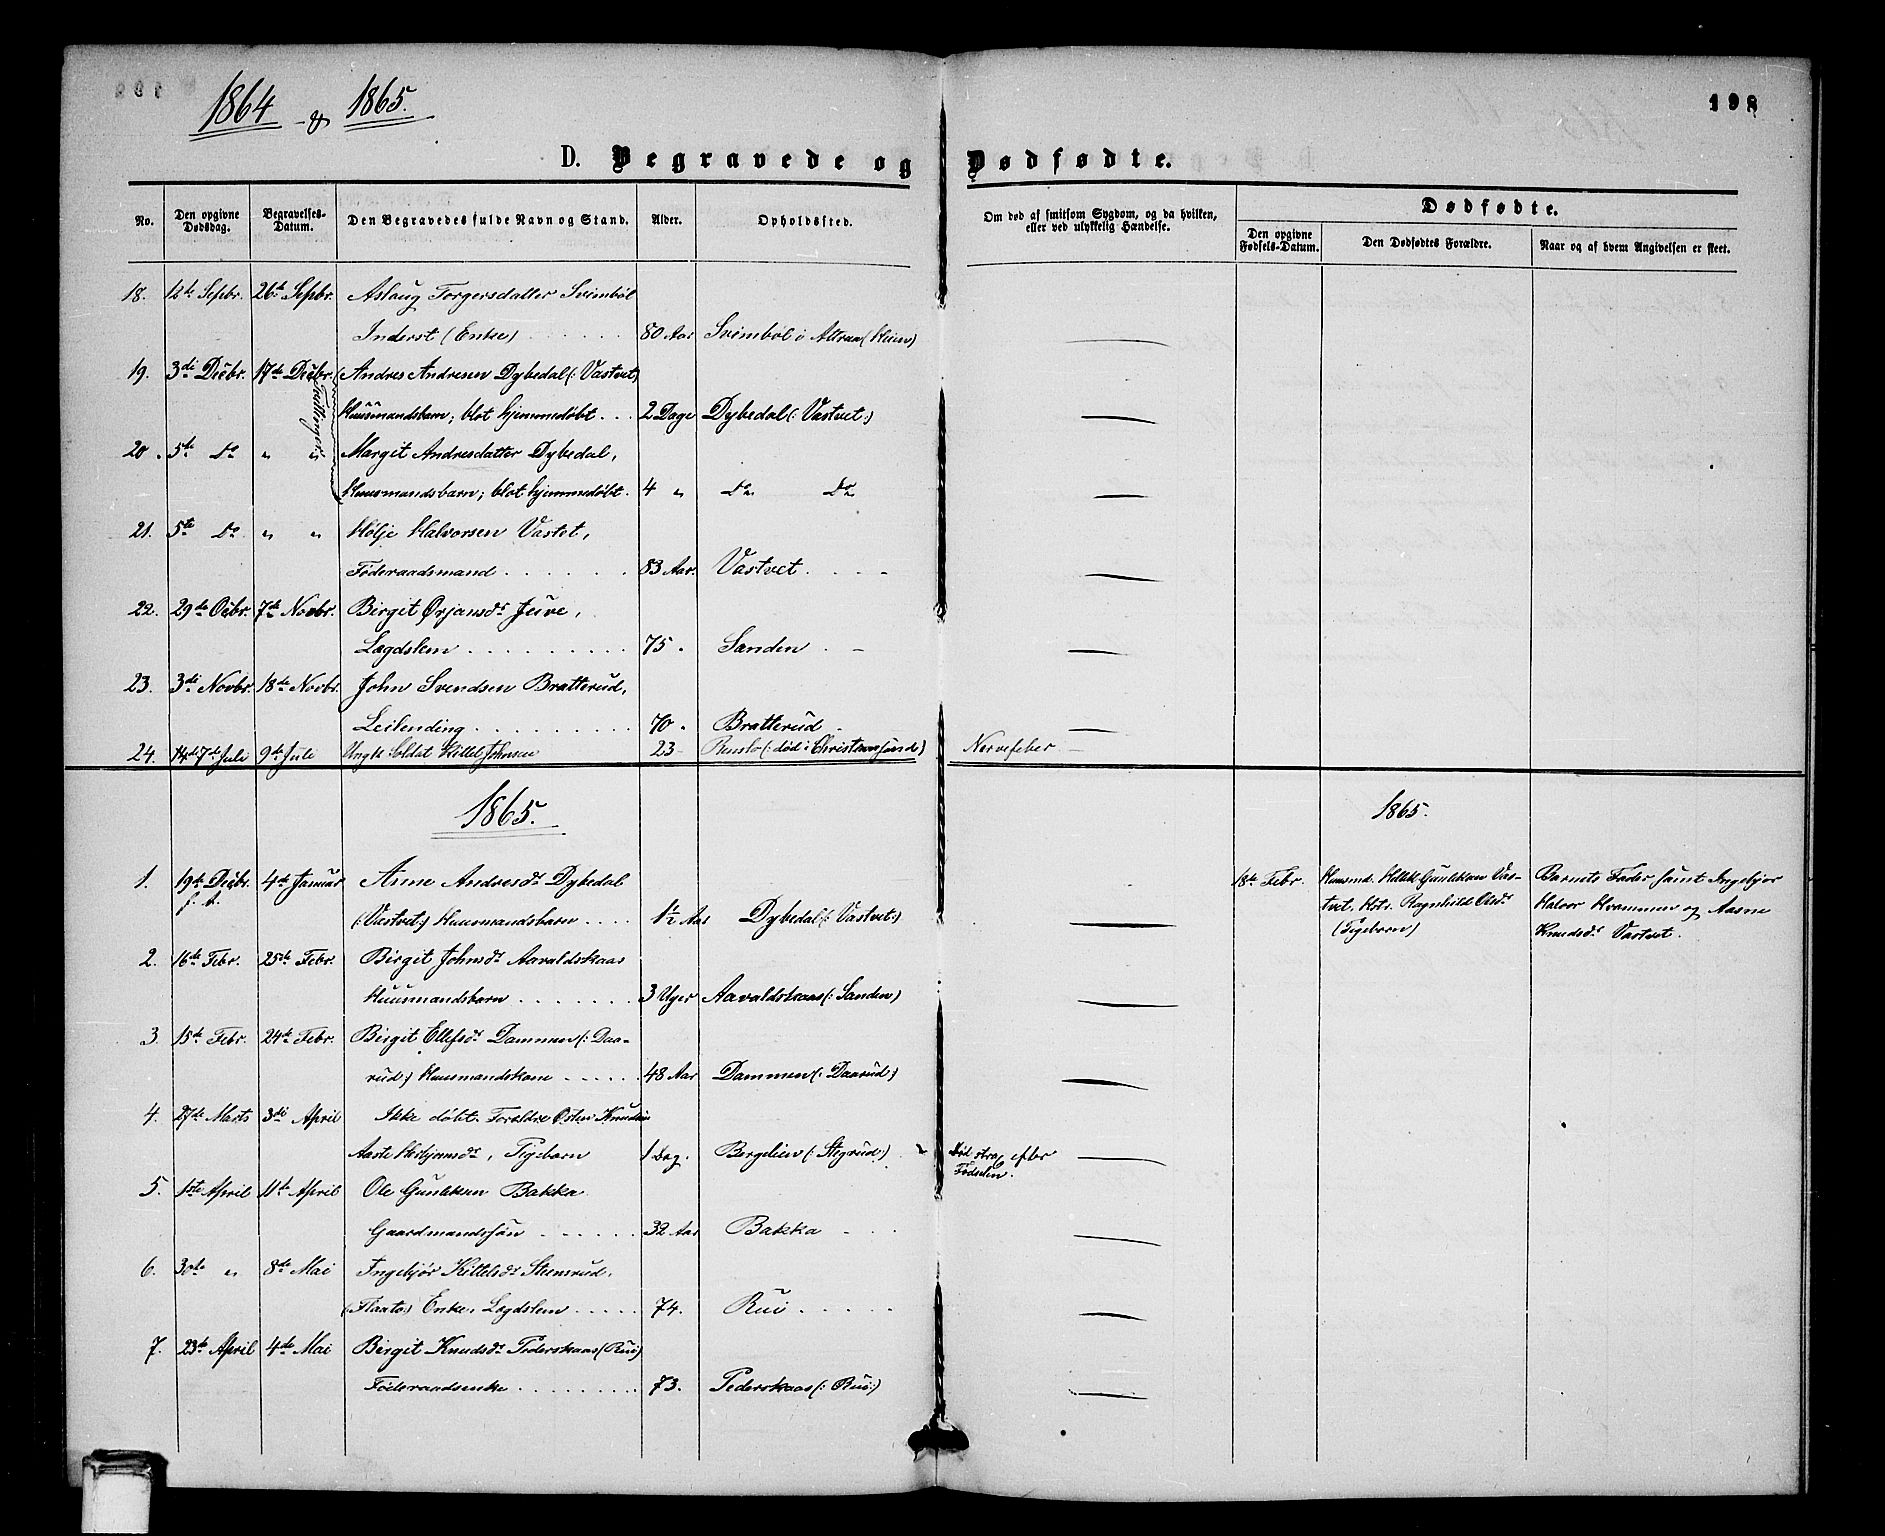 1864 & 1865.
198
D. Begravede og Dødfødte.
No.
Den opgivne Dødsdag.
Begravelses-Datum.
Den Begravedes fulde Navn og Stand.
Alder.
Opholdssted.
Om død af smitsom Sygdom, og da hvilken, eller ved ulykkelig Hændelse.
Dødfødte.
Den opgivne Fødsels-Datum.
Den Dødfødtes Forældre.
Naar og af hvem Angivelsen er skeet.
18. 12te Sepbr. 26de Sepbr. Aslaug Torgersdatter Svimbøl
Inderst (Enke) 80 Aar Svimbøl i Attraa (Hein)
19. 3di Decbr. 17de Decbr. Andres Andresen Dybedal (: Vastvet)
Tvillinger
Huusmandsbarn; blot hjemmedøbt. 2 Dage Dybedal (: Vastvet:)
20. 5te Do " " Margit Andresdatter Dybedal,
Huusmandsbarn; blot hjemmedøbt. 4 " Do Do
21. 5te Do " " Hølje Halvorsen Vastvet,
Føderaadsmand 83 Aar. Vastvet
22. 29de Ocbr. 7de Novbr. Birgit Ørjansdr Juve,
Lægdslem 75 " Sanden
23. 3di Novbr. 18de Novbr. John Svendsen Bratterud,
Leilending 70 " Bratterud
24. 7de Juli 9de Juli Ungk. Soldat Kittel Johnsen 23 (: død i Christianssund) Nervefeber
1865.
1865.
1. 19de Decbr. f. A. 4de Januar Anne Andresdr Dybedal
(: Vastvet:) Huusmandsbarn 1½ Aar Dybedal (: Vastvet:)
18de Febr. Huusmd. Kittel Gunleksen Vas-
tvet, Hstr. Ragnhild Olsdr
(Pigebarn)
Barnets Fader samt Ingebjør
Halvor Kvammen og Aasne
Knudsdr Vastvet.
2. 16de Febr. 25de Febr. Birgit Johnsdr Aavaldskaas
Huusmandsbarn 3 Uger Aavaldskaas (: Sanden)
3. 15de Febr. 24de Febr. Birgit Ellefsdr Dammen (: Daa-
rud:) Huusmandskone 48 Aar Dammen (: Daarud:)
4. 27de Marts 3di April Ikke døbt. Forældre Østen Knudsen
Aaste Herbjørnsdr, Pigebarn 1 Dag. Bergelien (: Stegrud:) Død strax efter
Fødselen.
5. 1ste April 11te April Ole Gunleksen Bakka
Gaardmandssøn 32 Aar Bakka
6. 30te " 8de Mai Ingebjør Kittelsdr Steensrud.
(Flaata:) Enke, Lægdslem 74. Rui
7. 23de April 4de Mai Birgit Knudsdr Pederskaas (Rui)
Føderaadsenke 73. Pederskaas (: Rui:)